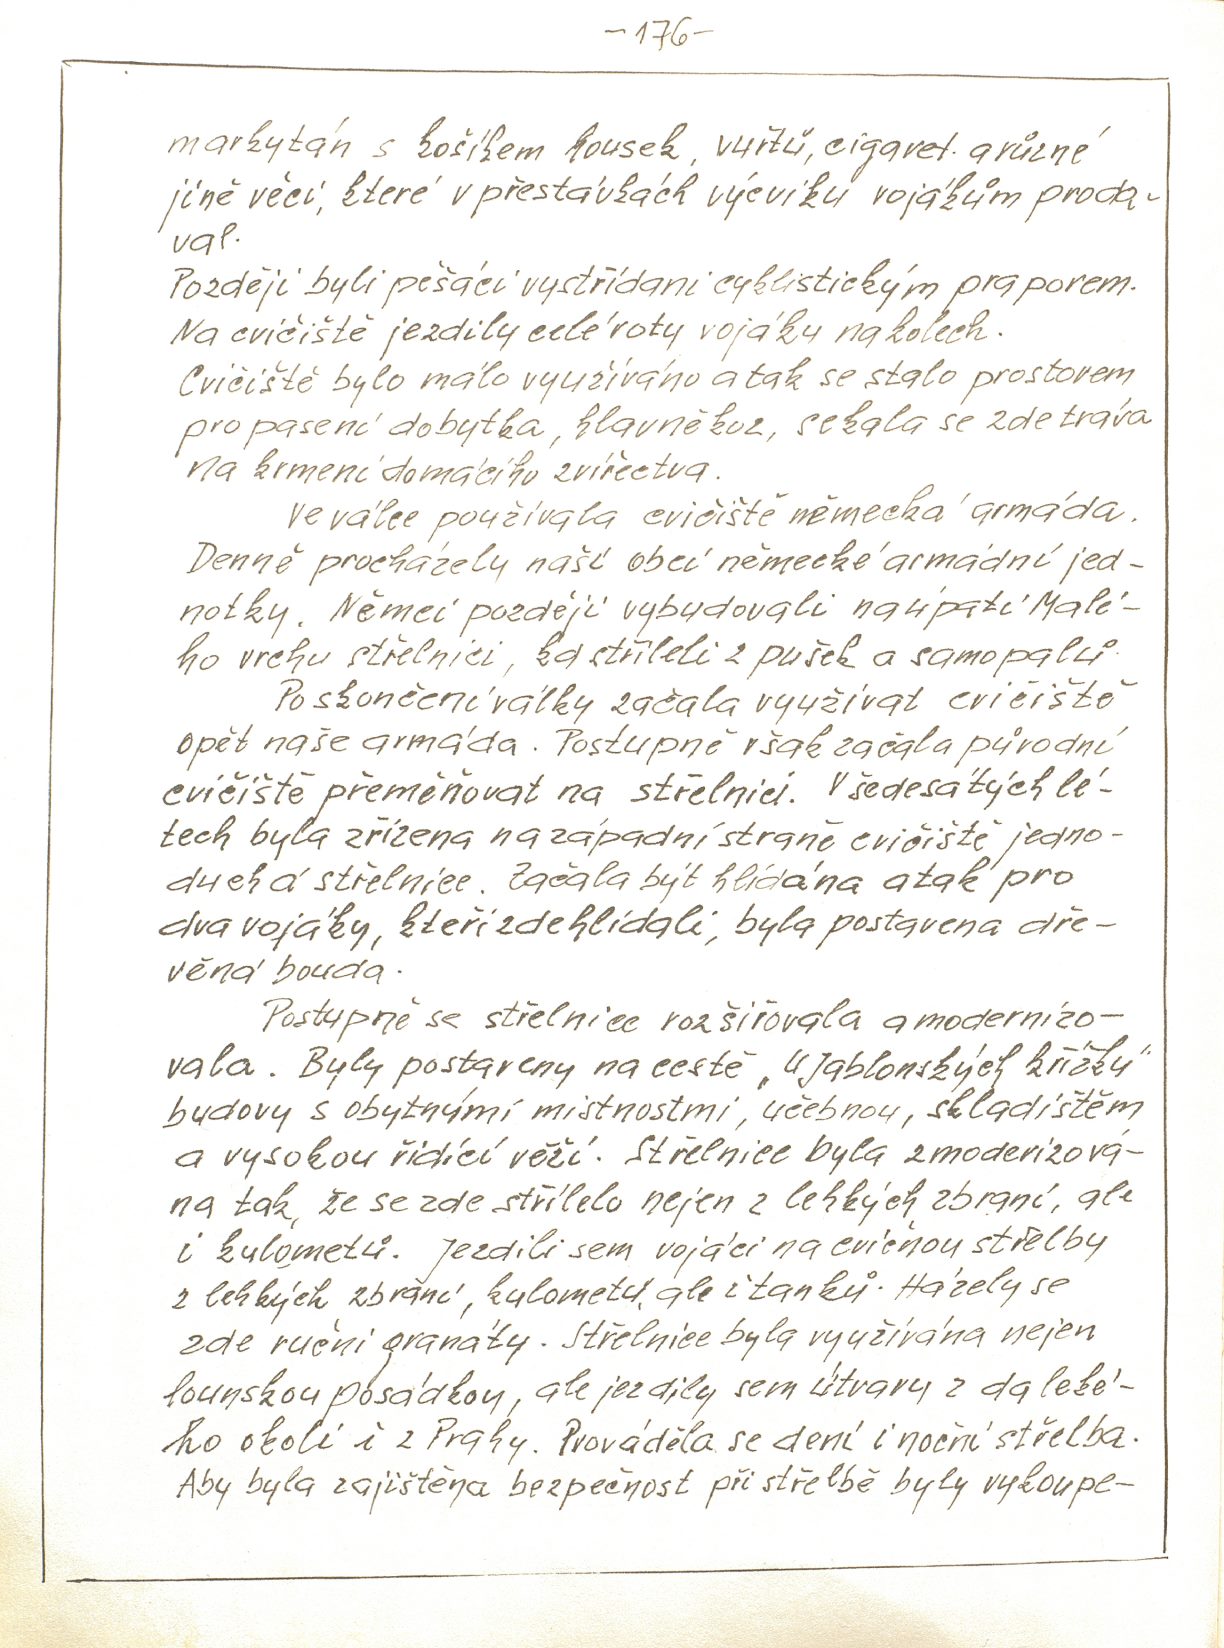 -176-
markytán s košíkem housek, vuřtů, cigaret. a různé
jině věci, které v přestávkách výcviku vojákům proda-
val.
Později byli pěšáci vystřídani cyklistickým praporem.
Na cvičiště jezdily celé roty vojáku na kolech.
Cvičiště bylo málo využíváno a tak se stalo prostorem
pro pasení dobytka, hlavně koz, sekala se zde tráva
na krmení domácího zvířectva.
Ve válce použivala cvičiště německá armáda.
Denně procházely naší obcí německé armádní jed-
notky. Němci později vybudovali na úpatí Malé-
ho vrchu střelnici, kd stříleli z pušek a samopalů.
Po skončení války začala využívat cvičiště
opět naše armáda. Postupně však začala původní
cvičiště přeměňovat na střelnici. V šedesátých lé-
tech byla zřízena na západní straně cvičiště jedno-
duchá střelnice. Začala být hlídána a tak pro
dva vojáky, kteří zde hlídali, byla postavena dře-
věná bouda.
Postupně se střelnice rozšiřovala a modernizo-
vala. Byly postaveny na cestě „U Jablonských křížků"
budovy s obytnými mistnostmi, učebnou, skladištěm
a vysokou řídící věží. Střelnice byla zmoderizová-
na tak, že se zde střílelo nejen z lehkých zbraní, ale
i kulometů. Jezdili sem vojáci na cvičnou střelby
z lehkých zbraní, kulometů, ale i tanků. Házely se
zde ruční granáty. Střelnice byla využívána nejen
lounskou posádkou, ale jezdily sem útvary z daleké-
ho okolí i z Prahy. Prováděla se dení i noční střelba.
Aby byla zajištěna bezpečnost při střelbě byly vykoupe-